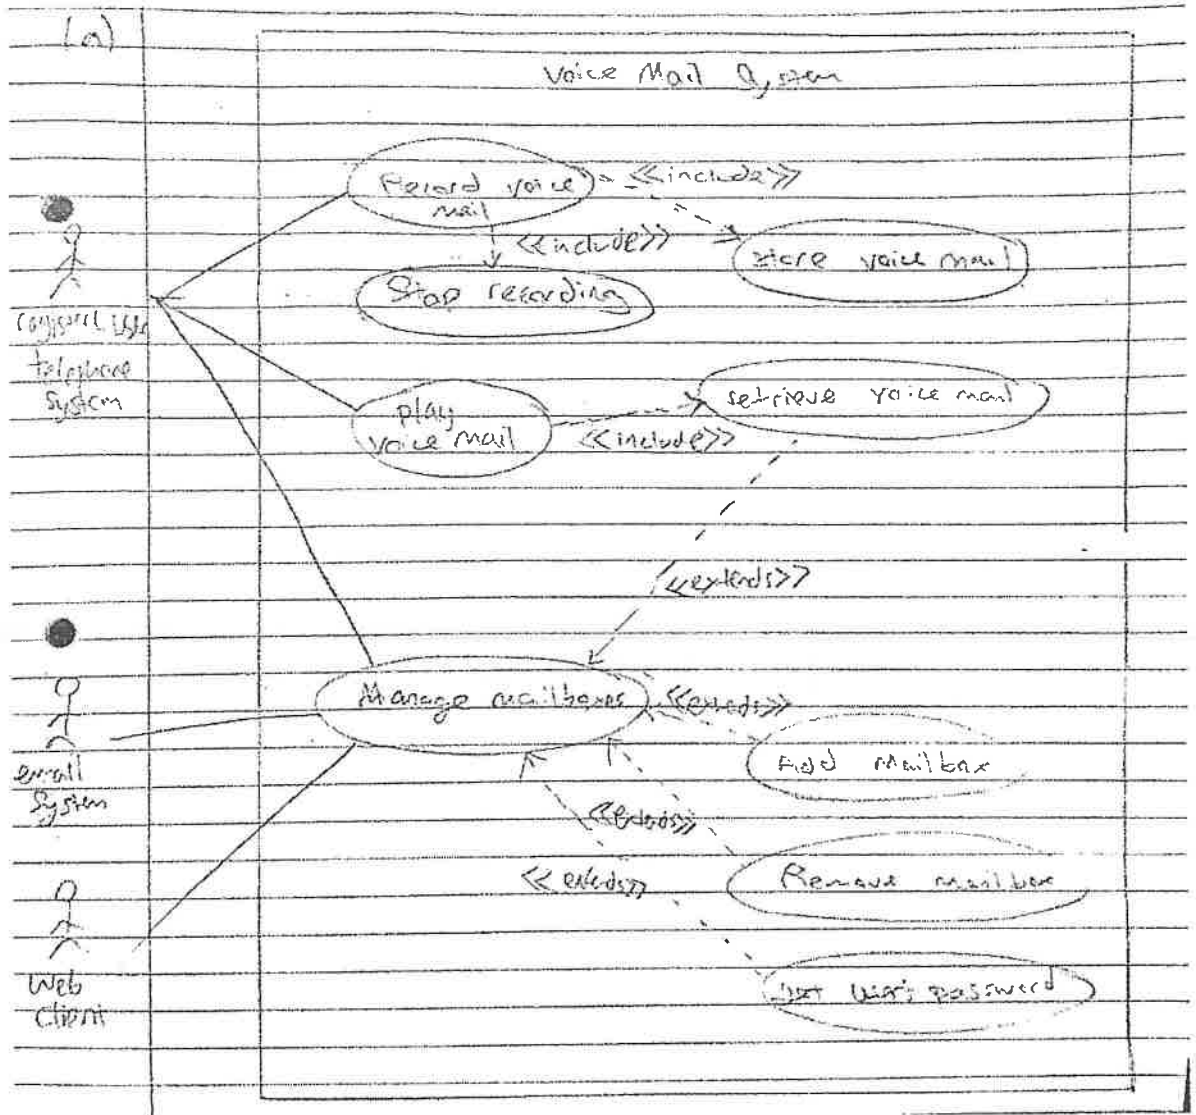 (a)
Voice Mail System
Record voice
mail
<<include>>
<<include>>
store voice mail
Stop recording
telephone
System
play
voice mail
<<include>>
retrieve voice mail
<<extends>>
Manage mailboxes
<<extends>>
Add Mailbox
email
System
<<extends>>
<<extends>>
Remove mailbox
Web
Client
password